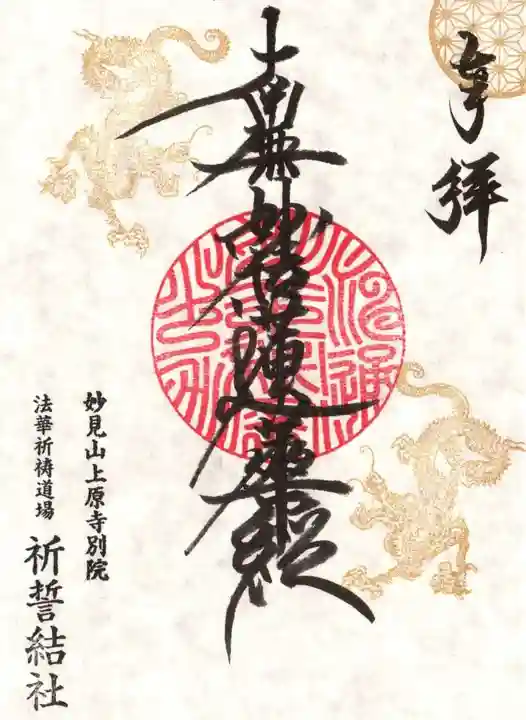 奉拝
南無妙法蓮華経
妙見山上原寺別院
法華祈祷道場
祈誓結社